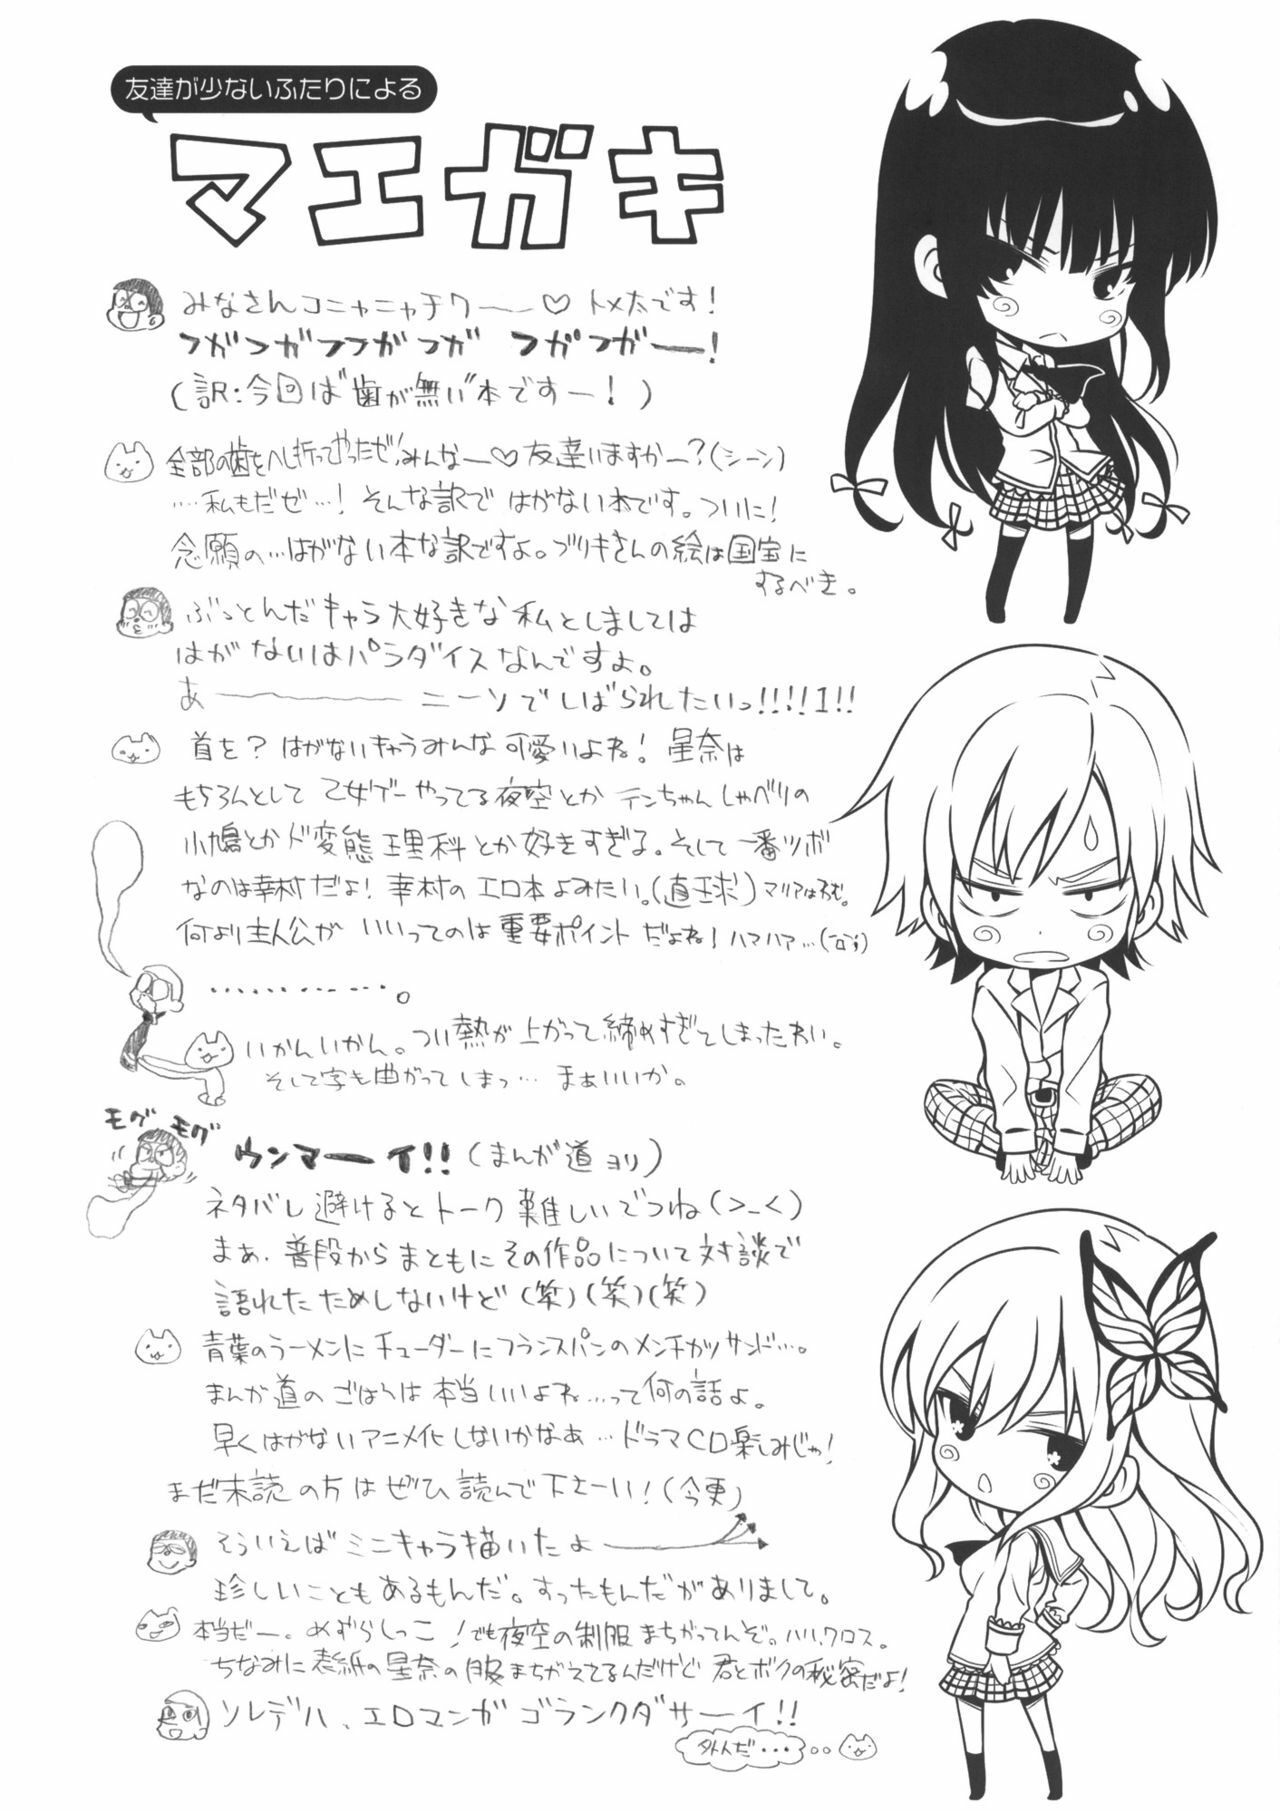 友達が少ないふたりによる
マエガキ
みなさんコニャニャチワー―♡ トメ太です!
フガフガフフガフガ フガフガー!
(訳:今回は"歯が無い"本ですー!)
全部の歯をへし折ってやったぜ!みんなー♡友達いますかー?(シーン)
…私もだぜ…!そんな訳で はがない本です。ついに!
念願の…はがない本な訳ですよ。ブリキさんの絵は国宝に
するべき。
ぶっとんだキャラ大好きな私としましては
はがないはパラダイスなんですよ。
あ――――― ニーソでしばられたいっ!!!!1!!
首を?はがないキャラみんな可愛いよね!星奈は
もちろんとして乙女ゲーやってる夜空とかテンちゃんしゃべりの
小鳩とかド変態理科とか好きすぎる。そして一番ツボ
なのは幸村だよ!幸村のエロ本よみたい。(直球)マリアは
何より主人公がいいってのは重要ポイントだよね!ハァハァ…
…………。
いかんいかん。つい熱が上がって締めすぎてしまったわい。
そして字も曲がってしまっ… まぁいいか。
モグ モグ
ウンマーイ!!(まんが道ヨリ)
ネタバレ避けるとトーク難しいでつね(>_<)
まぁ、普段からまともにその作品について対談で
語れたためしないけど(笑)(笑)(笑)
青葉のラーメンにチューダーにフランスパンのメンチカツサンド…。
まんが道のごはんは本当いいよね…って何の話よ。
早くはがないアニメ化しないかなあ…ドラマCD楽しみじゃ!
まだ未読の方はぜひ読んで下さーい!(今更)
そういえばミニキャラ描いたよ――
珍しいこともあるもんだ。すったもんだがありまして。
本当だー。めずらしっこ!でも夜空の制服まちがってんぞ。ハハハ、クロス。
ちなみに表紙の星奈の服まちがえてるんだけど君とボクの秘密だよ!
ソレデハ、エロマンガゴランクダサーイ!!
外人だ・・・